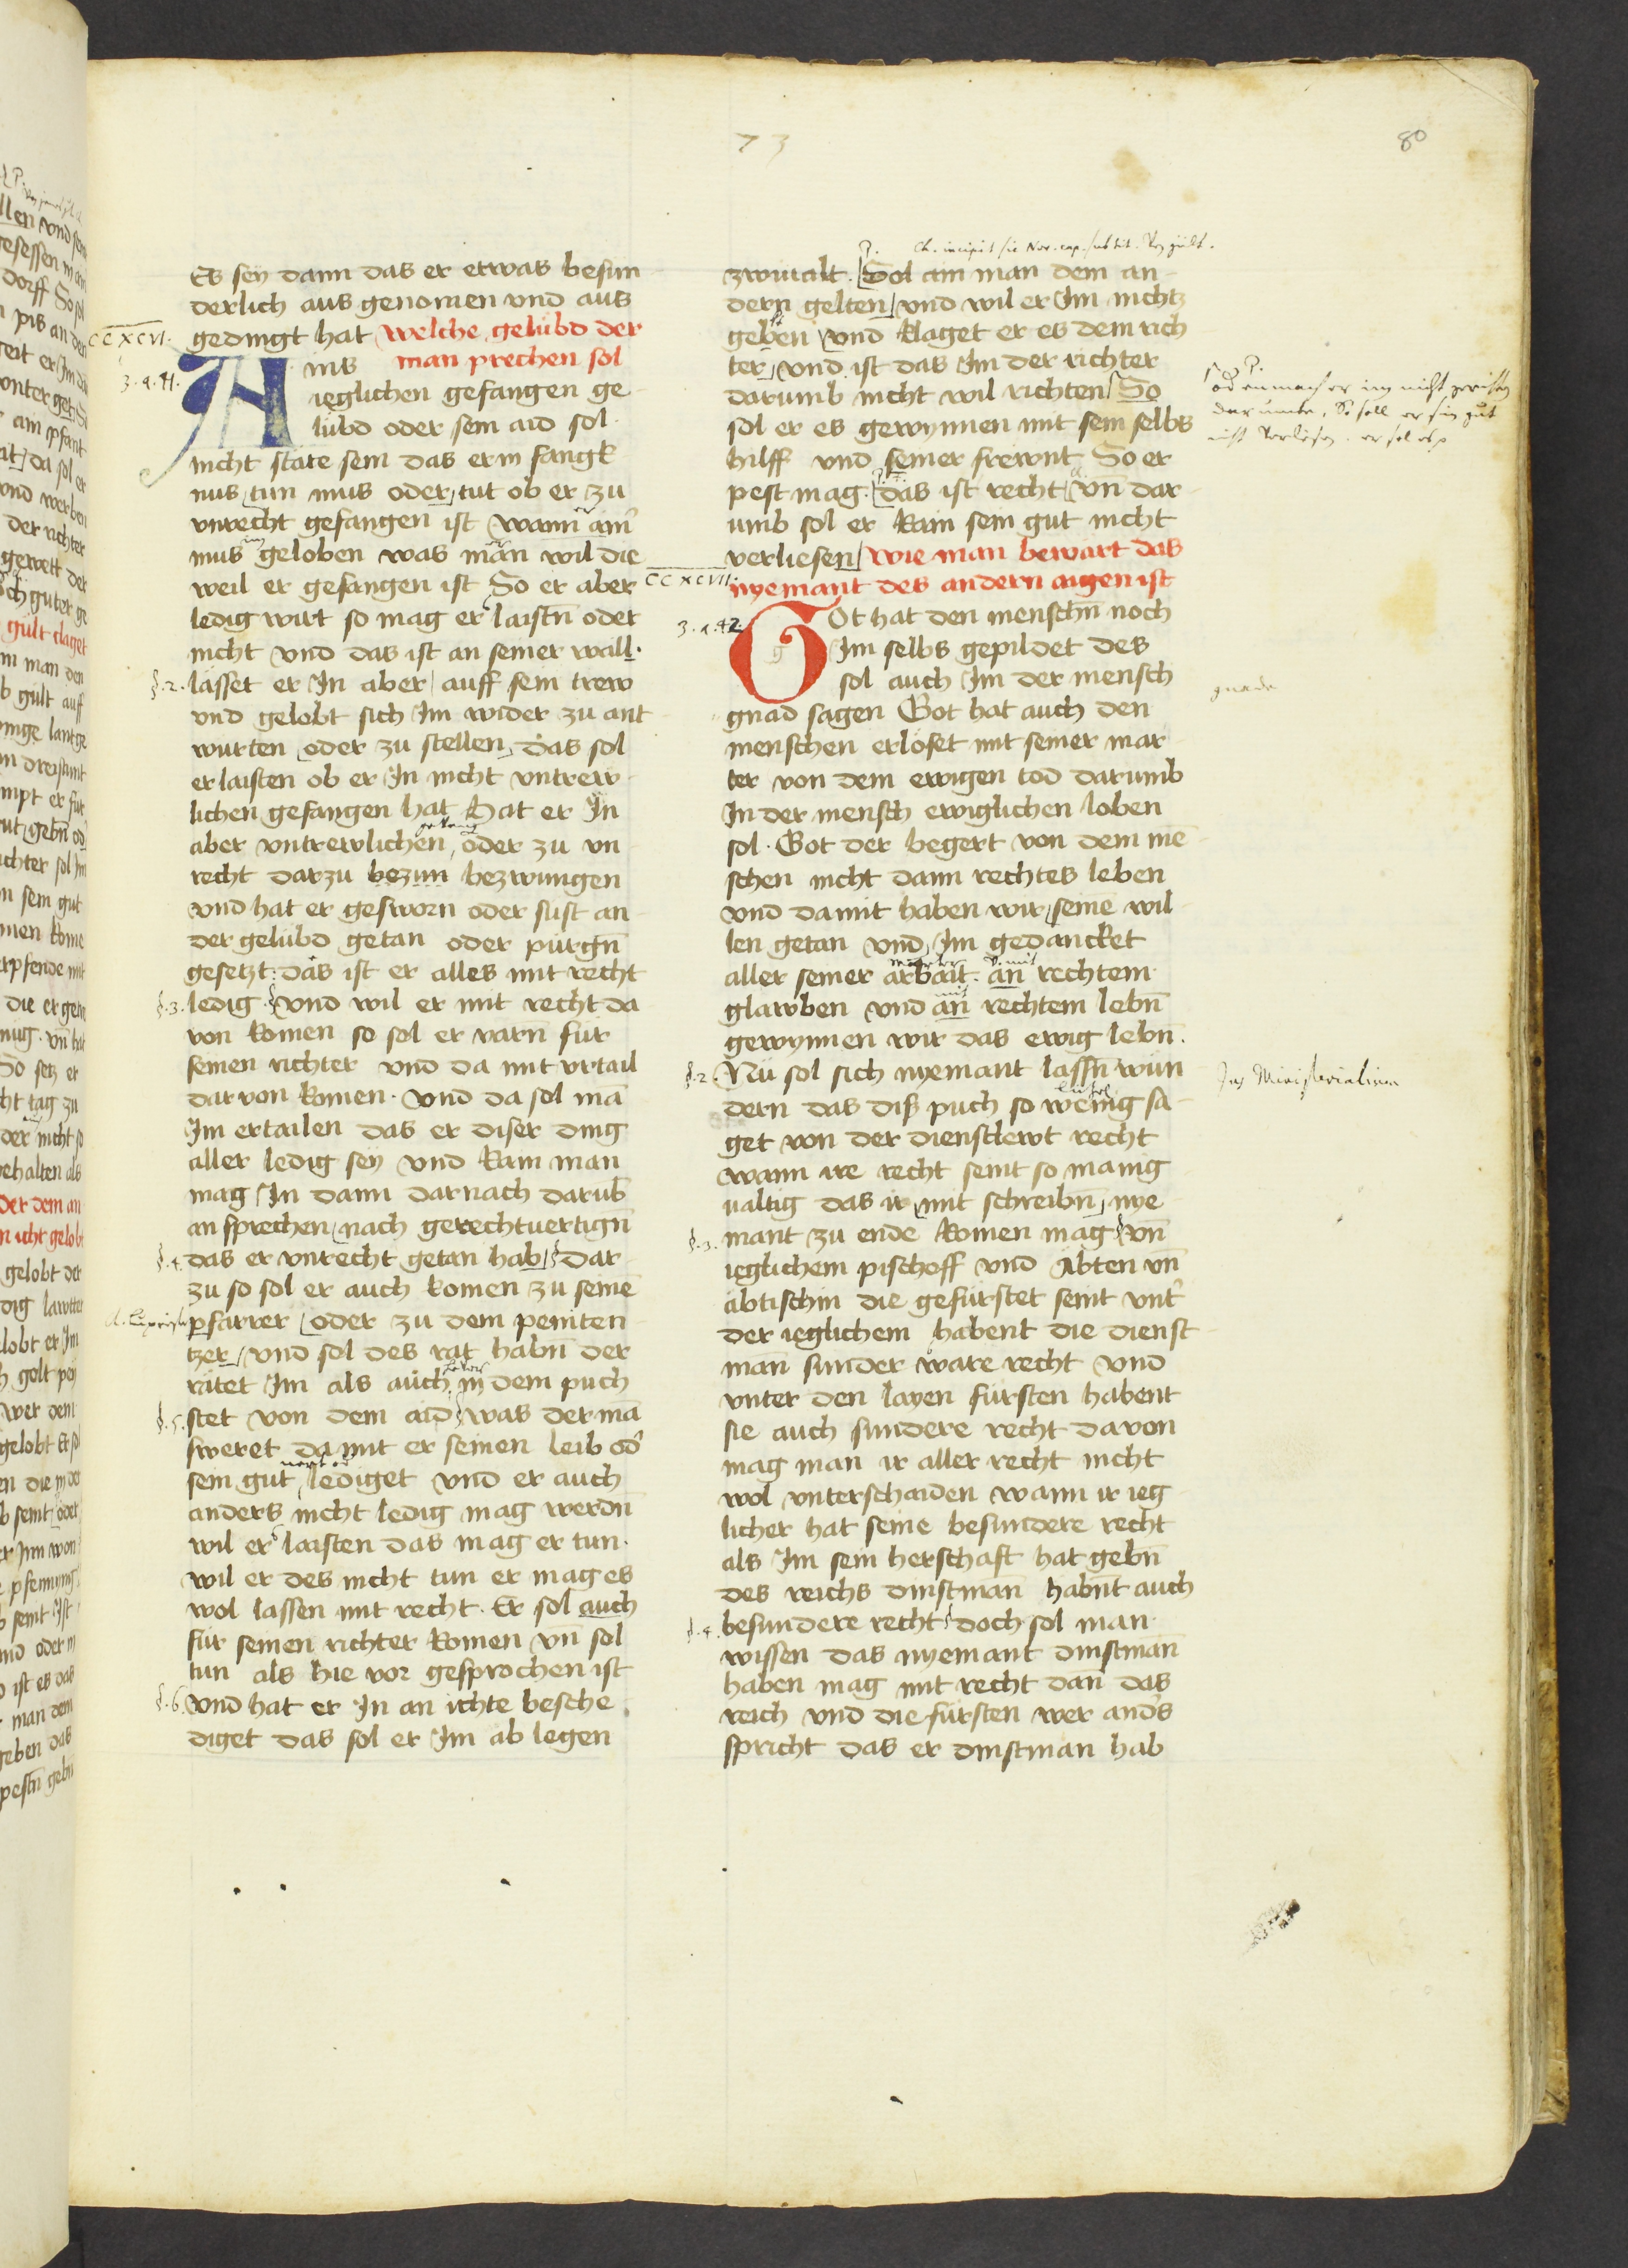 73
80
Es sey dann das er etwas besun
derlich aus genomen vnd aus
gedingt hat welche gelubd der
CCXCVI.
Ains man prechen sol
3. a. 41.
ieglichen gefangen ge
lubd oder sein aid sol
nicht state sein das er in fangk
nus tun mus oder tut ob er zu
vnrecht gefangen ist wann ain
mus geloben was man wil die
weil er gefangen ist So er aber
ledig wirt so mag er laistn oder
nicht vnd das ist an seiner wall.
§.2. lasset er In aber auff sein trew
vnd gelobt sich Im wider zu ant
wurten oder zu stellen das sol
er laisten ob er In nicht vntrew
lichen gefangen hat Hat er In
aber vntrewlichen oder zu vn
recht darzu bezun bezwungen
vnd hat er gesworn oder sust an
der gelubd getan oder purgn
gesetzt das ist er alles mit recht
§.3. ledig vnd wil er mit recht da
von komen so sol er varn fur
seinen richter vnd da mit vrtail
dar von komen. vnd da sol mā
Im ertailen das er diser ding
aller ledig sey vnd kain man
mag In dann darnach darub
an sprechen nach gerechtuertign
§.4. das er vnrecht getan hab dar
zu so sol er auch komen zu seinē
pfarrer oder zu dem peniten
tzer vnd sol des rat habn der
ratet Im als auch in dem puch
§.5. stet von dem aid was der mā
sweret da mit er seinen leib od
sein gut lediget vnd er auch
anders nicht ledig mag werdn
wil er laisten das mag er tun.
wil er des nicht tun er mag es
wol lassen mit recht. Er sol auch
fur seinen richter komen vn sol
tun als hie vor gesprochen ist
§.6. vnd hat er In an ichte besche
diget das sol er Im ab legen
zwiualt. Sol ain man dem an
dern gelten vnd wil er Im nichtz
geben vnd klaget er es dem rich
ter vnd ist das Im der richter
darumb nicht wil richten So
sol er es gewynnen mit sein selbs
hilff vnd seiner frewnt So er
pest mag. das ist recht vn dar
umb sol er kain sein gut nicht
verliesen wie man bewart das
CCXCVII.
nyemant des andern aigen ist
3. a. 42.
Got hat den menschn noch
Im selbs gepildet des
sol auch Im der mensch
gnade
gnad sagen Got hat auch den
menschen erloset mit seiner mar
ter von dem ewigen tod darumb
In der mensch ewiglichen loben
sol. Got der begert von dem mē
schen nicht dann rechtes leben
vnd damit haben wir seine wil
len getan vnd Im gedancket
aller seiner arbait. an rechtem
glawben vnd an rechtem lebn
gewynnen wir das ewig lebn.
§.2. Nu sol sich nyemant lassn wun
Jus Ministerialium
dern das diß puch so wenig sa
get von der dienstlewt recht
wann ire recht seint so manig
ualtig das ir mit schreibn nye
§.3. mant zu ende komen mag vn
ieglichem pischoff vnd Abten vn
abtischin die gefurstet seint vnt
der ieglichem habent die dienst
man sunder ware recht vnd
vnter den layen fursten habent
sie auch sundere recht dauon
mag man ir aller recht nicht
wol vnterschaiden wann ir ieg
licher hat seine besundere recht
als Im sein herschaft hat gebn
des reichs dinstman habnt auch
§.4. besundere recht doch sol man
wissen das nyemant dinstman
haben mag mit recht dan das
reich vnd die fursten wer anders
spricht das er dinstman hab